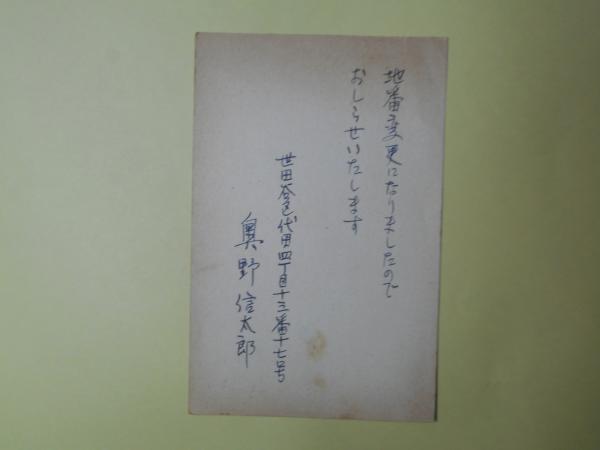 地番変更になりましたので
おしらせいたします
世田谷区代田四丁目十三番十七号
奥野信太郎